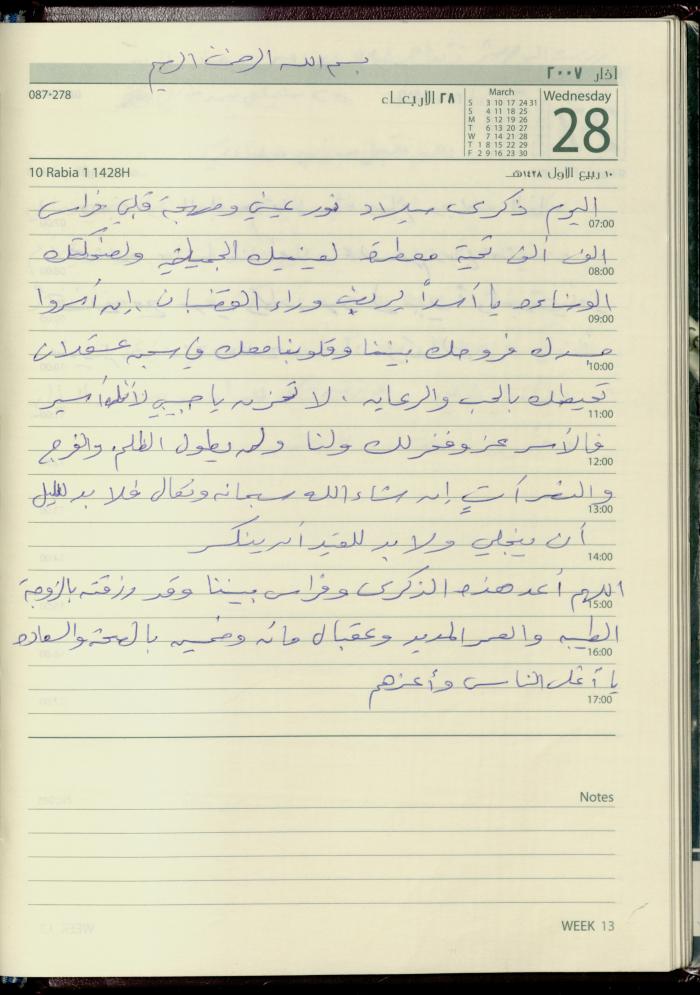 بسم الله الرحمن الرحيم
آذار ٢٠٠٧
087-278
٢٨ الأربعاء
March
S 3 10 17 24 31
S 4 11 18 25
M 5 12 19 26
T 6 13 20 27
W 7 14 21 28
T 1 8 15 22 29
F 2 9 16 23 30
Wednesday
28
10 Rabia 1 1428H
١٠ ربيع الاول ١٤٢٨هـ
اليوم ذكرى ميلاد نور عيني ومهجة قلبي فراس
07:00
الف ألف تحية معطرة لعينيك الجميلتين ولضحكتك
08:00
الوضاءه يا أسداً يربض وراء القضبان. إن أسروا
09:00
جسدك فروحك بيننا وقلوبنا معك في سجن عسقلان
10:00
تحيطك بالحب والرعايه. لا تحزن يا حبيبي لأنك أسير
11:00
فالأسر عز وفخر لك ولنا ولن يطول الظلم والفرج
12:00
والنصر آتٍ إن شاء الله سبحانه وتعالى فلا بد لليل
13:00
أن ينجلي ولا بد للقيد أن ينكسر
14:00
اللهم أعد هذه الذكرى وفراس بيننا وقد رزقته بالزوجة
15:00
الطيبه والعمر المديد وعقبال مائه وخمسين بالصحة والسعاده
16:00
يا أغلى الناس وأعزهم
17:00
Notes
WEEK 13